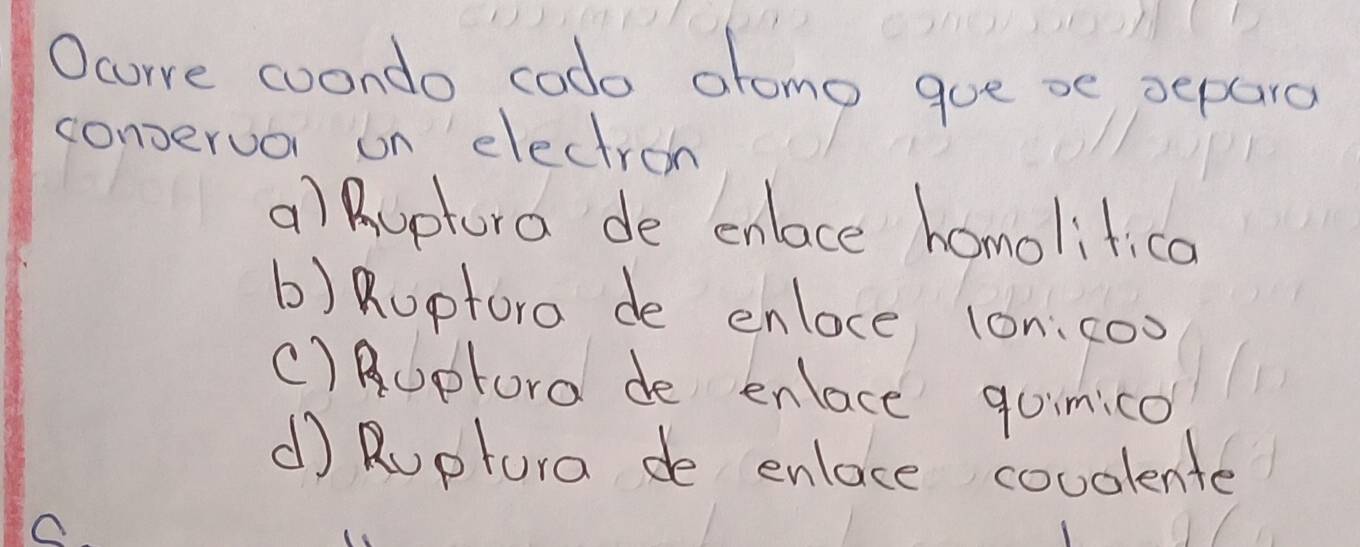 Ocurre cuando cada atomo que se separa
conserva un electron
a) Ruptura de enlace homolitica
b) Ruptura de enlace ionicos
c) Ruptura de enlace quimico
d) Ruptura de enlace covalente